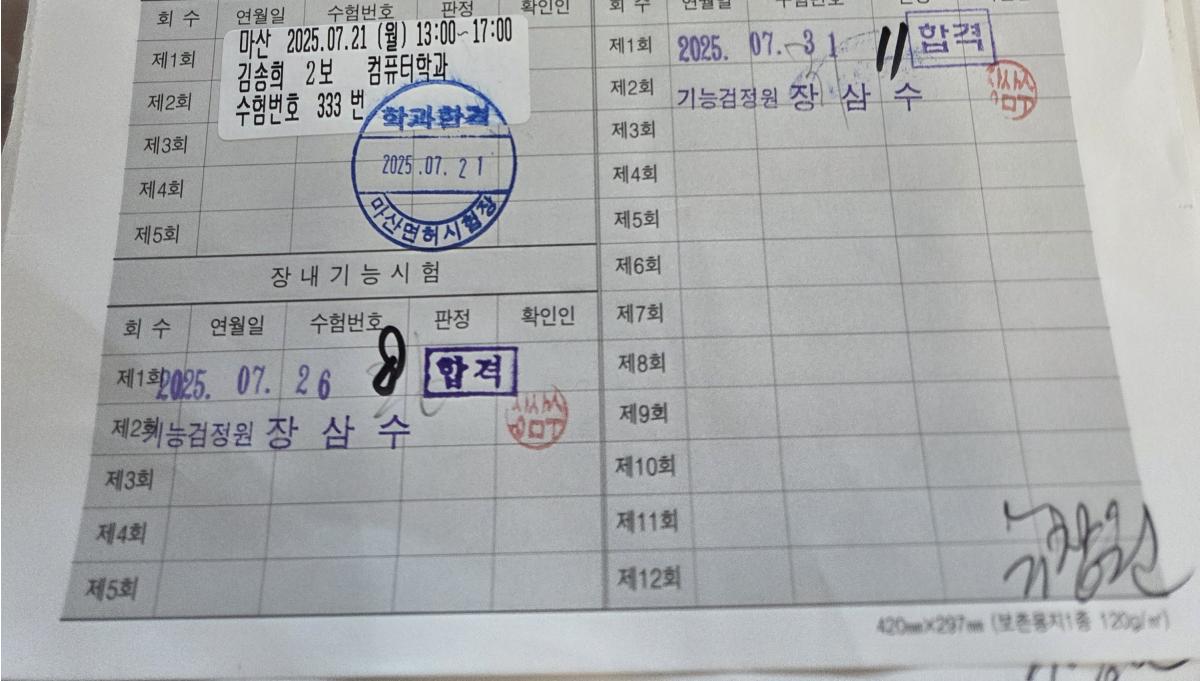 회 수 연월일 수험번호 판정 확인인
마산 2025.07.21 (월) 13:00~17:00
김송희 2보 컴퓨터학과
수험번호 333 번
제1회
제2회
제3회
제4회
제5회
학과합격
2025.07.21
마산면허시험장
장내기능시험
회 수 연월일 수험번호 판정 확인인
제1회 2025. 07. 26 8 합격
제2회 기능검정원 장 삼 수
제3회
제4회
제5회
회 수 연월일 수험번호
제1회 2025. 07. 31 11 합격
제2회 기능검정원 장 삼 수
제3회
제4회
제5회
제6회
제7회
제8회
제9회
제10회
제11회
제12회
420㎜×297㎜ (보존용지1종 120g/㎡)